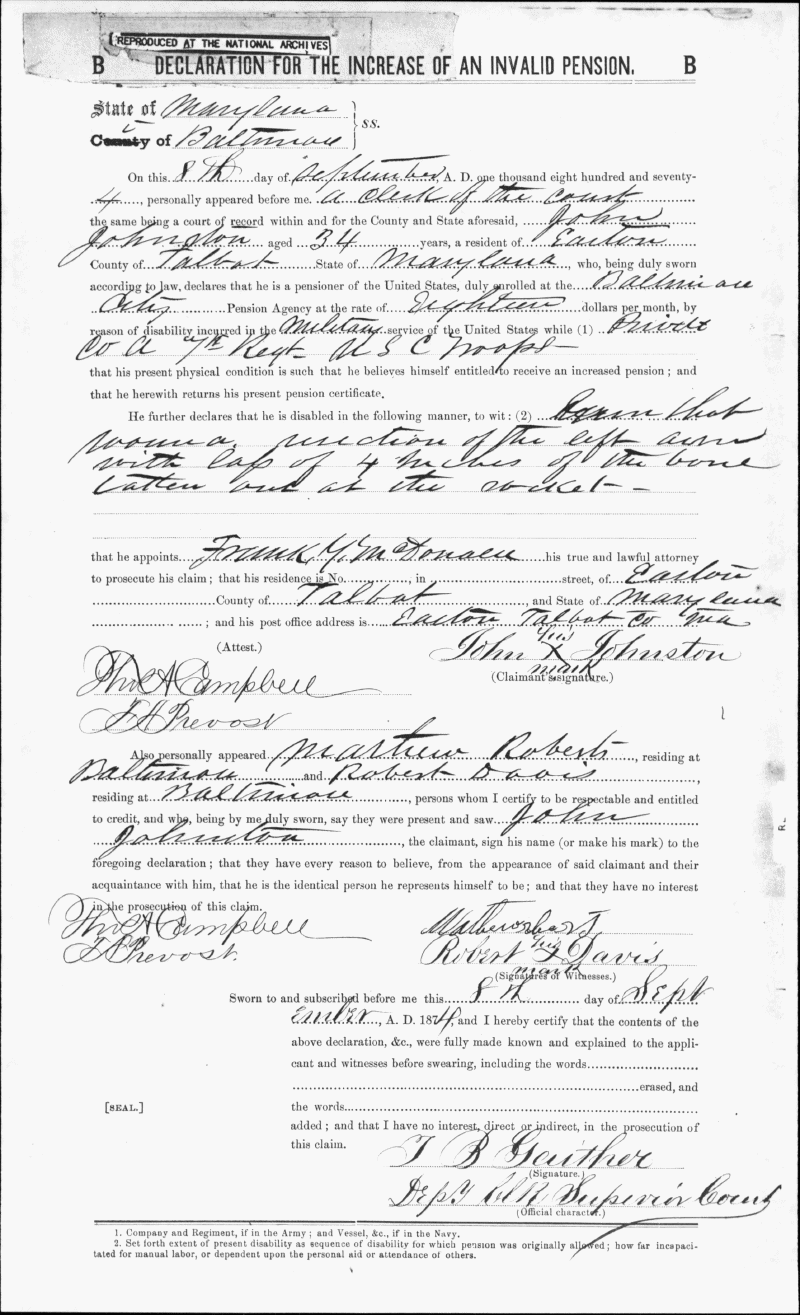 REPRODUCED AT THE NATIONAL ARCHIVES
B DECLARATION FOR THE INCREASE OF AN INVALID PENSION. B
State of Maryland
County of Baltimore
ss.
On this 8th day of September, A. D. one thousand eight hundred and seventy-
4, personally appeared before me. a clerk of the court
the same being a court of record within and for the County and State aforesaid, John
Johnston aged 34 years, a resident of Easton
County of Talbot State of Maryland, who, being duly sworn
according to law, declares that he is a pensioner of the United States, duly enrolled at the Baltimore
City Pension Agency at the rate of Eighteen dollars per month, by
reason of disability incurred in the Military service of the United States while (1) Privet
Co A 7th Regt U S C Troops
that his present physical condition is such that he believes himself entitled to receive an increased pension; and
that he herewith returns his present pension certificate.
He further declares that he is disabled in the following manner, to wit: (2) that
wound resection of the left arm
with loss of 4 inches of the bone
tatten out at the socket -
that he appoints Frank Y. McDonald his true and lawful attorney
to prosecute his claim; that his residence is No. , in street, of Easton
County of Talbot, and State of Maryland
; and his post office address is Easton Talbot Co Md
(Attest.)
John his X mark Johnston
(Claimant's signature.)
Thos A Campbell
F A Prevost
Also personally appeared Mathew Roberts, residing at
Baltimore and Robert Davis,
residing at Baltimore, persons whom I certify to be respectable and entitled
to credit, and who, being by me duly sworn, say they were present and saw John
Johnston, the claimant, sign his name (or make his mark) to the
foregoing declaration; that they have every reason to believe, from the appearance of said claimant and their
acquaintance with him, that he is the identical person he represents himself to be; and that they have no interest
in the prosecution of this claim.
Thos A Campbell
F A Prevost.
Robert his X mark Davis
(Signatures of Witnesses.)
Sworn to and subscribed before me this 8th day of Sept
ember, A. D. 1874, and I hereby certify that the contents of the
above declaration, &c., were fully made known and explained to the appli-
cant and witnesses before swearing, including the words
erased, and
[SEAL.]
the words
added; and that I have no interest, direct or indirect, in the prosecution of
this claim.
T B Gaither
(Signature.)
Depy Clk Superior Court
(Official character.)
1. Company and Regiment, if in the Army; and Vessel, &c., if in the Navy.
2. Set forth extent of present disability as sequence of disability for which pension was originally allowed; how far incapaci-
tated for manual labor, or dependent upon the personal aid or attendance of others.